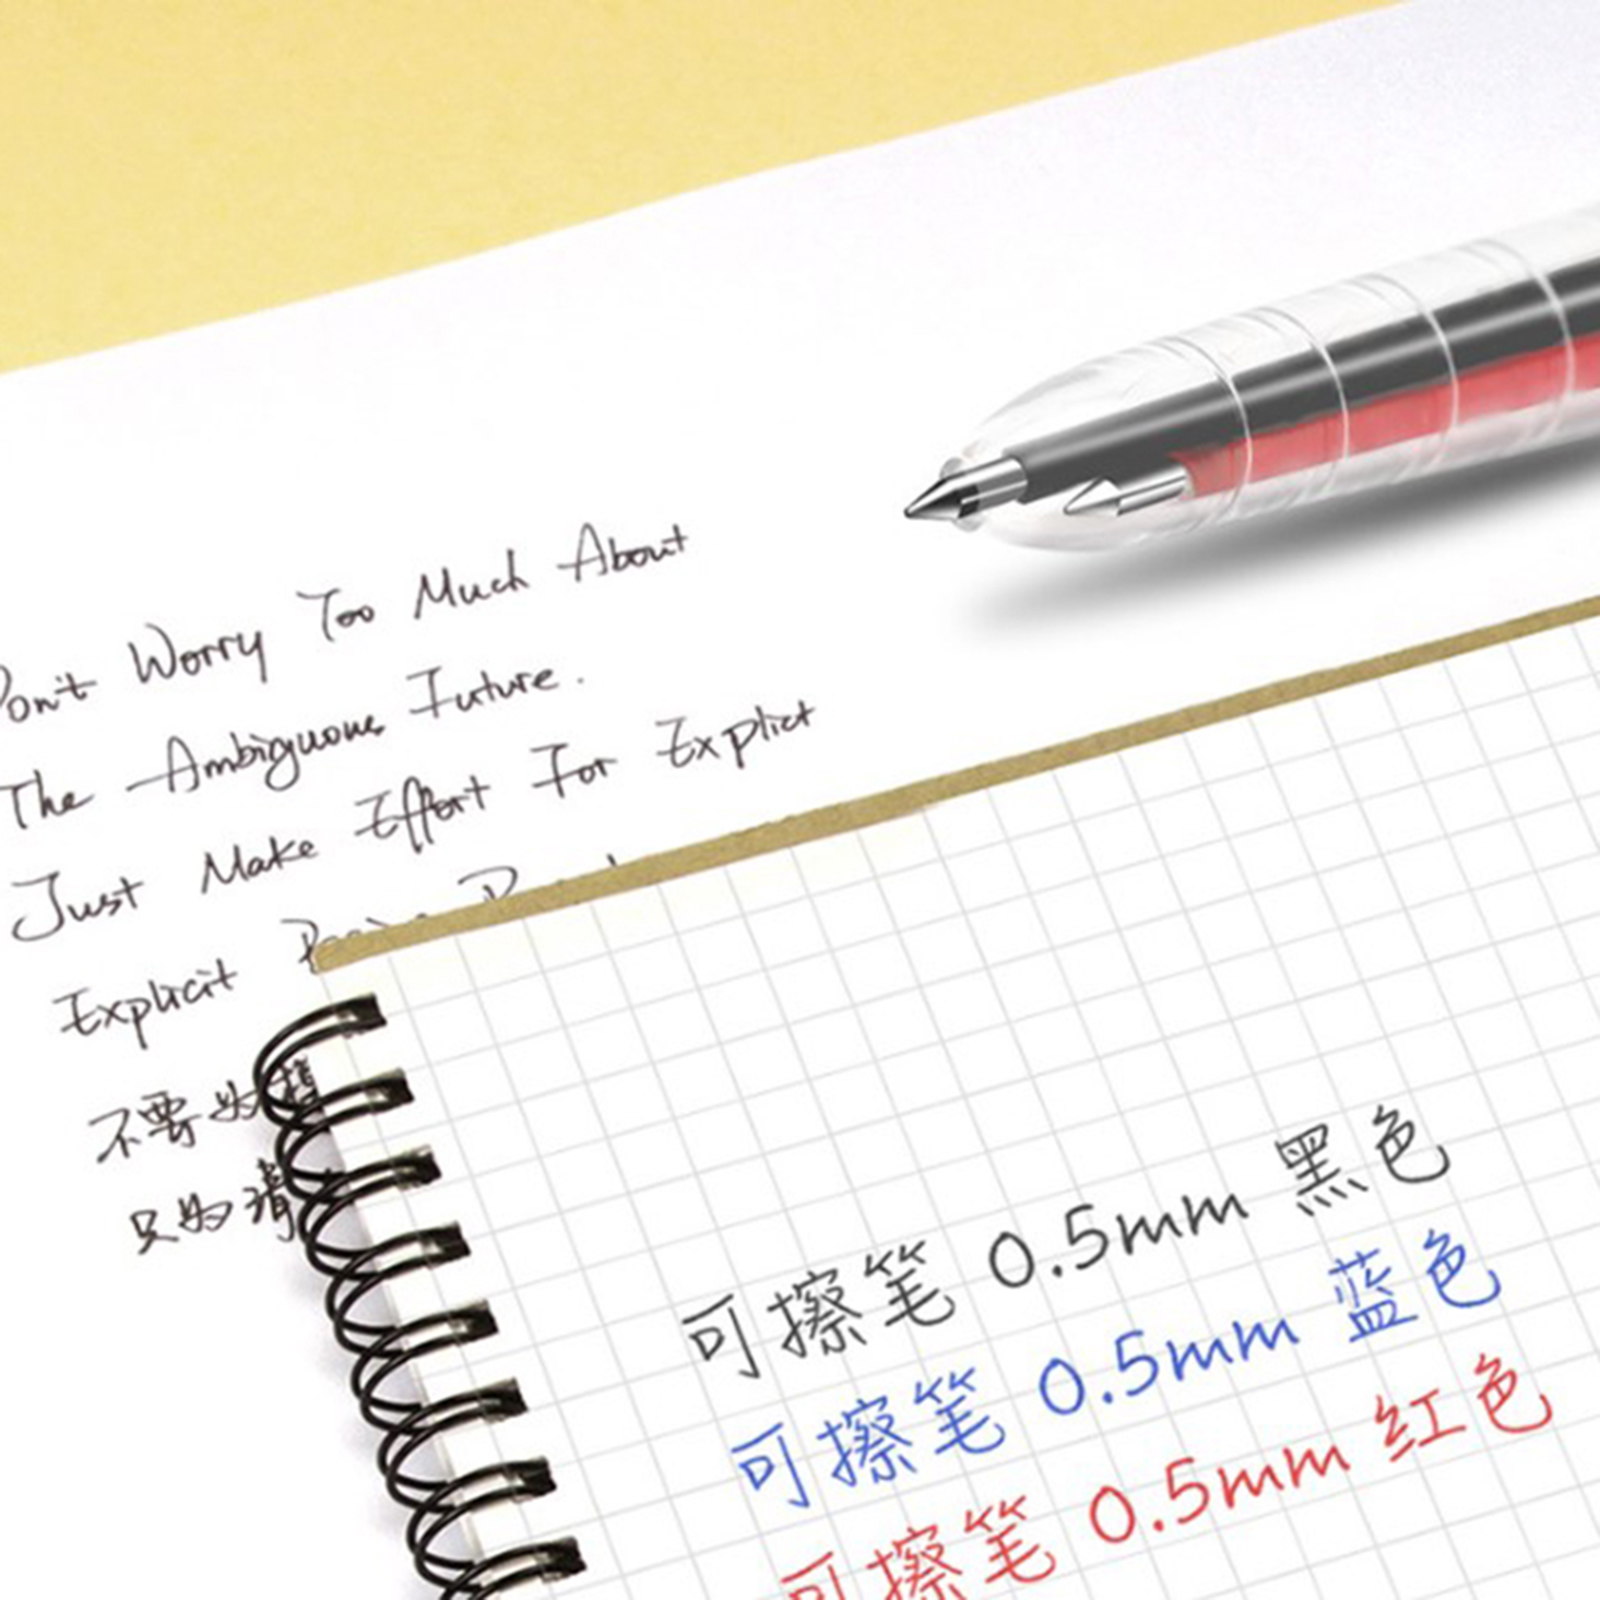 Don't Worry Too Much About
The Ambiguous Future.
Just Make Effort For Explict
Explicit
不要
只为清
可擦笔 0.5mm 黑色
可擦笔 0.5mm 蓝色
可擦笔 0.5mm 红色